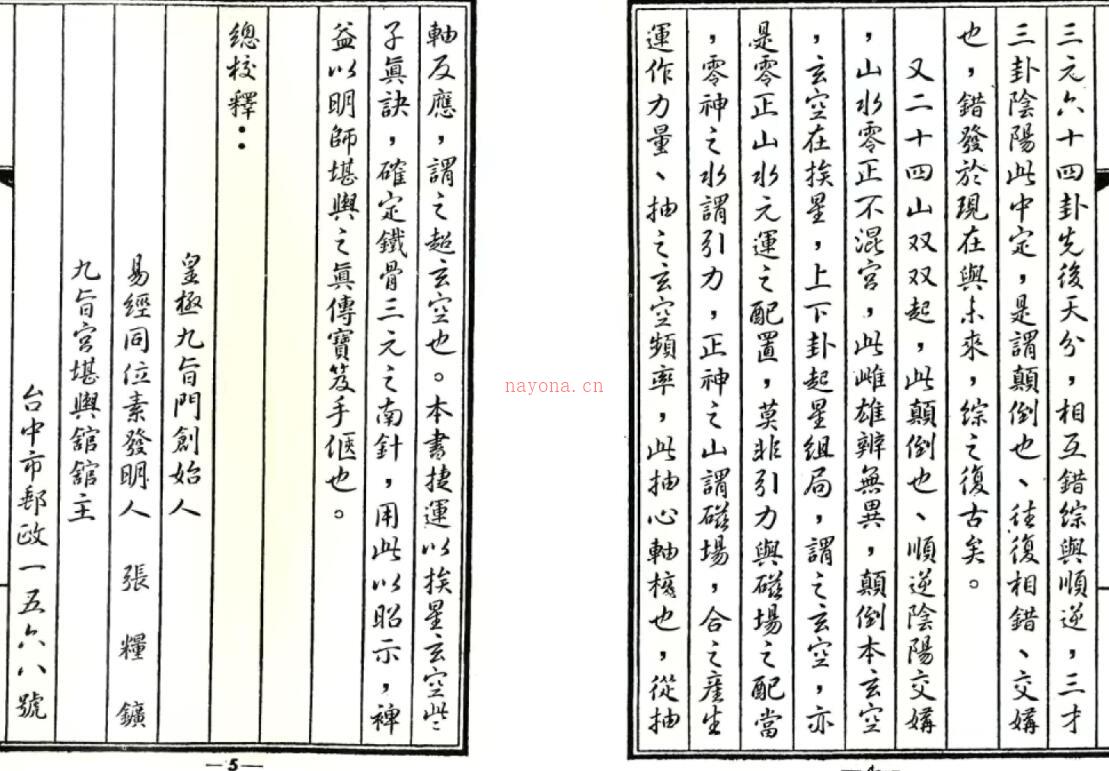 三元六十四卦先後天分，相互錯綜與順逆，三才
三卦陰陽此中定，是謂顛倒也、往復相錯、交媾
也，錯發於現在與未來，綜之復古矣。
又二十四山双双起，此顛倒也、順逆陰陽交媾
，山水零正不混宮，此雌雄辨無異，顛倒本玄空
，玄空在挨星，上下卦起星組局，謂之玄空，亦
是零正山水元運之配置，莫非引力與磁場之配當
，零神之水謂引力，正神之山謂磁場，合之產生
運作力量、抽之玄空頻率，此抽心軸核也，從抽
軸反應，謂之超玄空也。本書捷運以挨星玄空些
子眞訣，確定鐵骨三元之南針，用此以昭示，裨
益以明師堪輿之眞傳寶笈手偃也。
總校釋：
皇極九旨門創始人
易經同位素發明人 張糧鑛
九旨宮堪輿舘舘主
台中市郵政一五六八號
nayona.cn
—5—